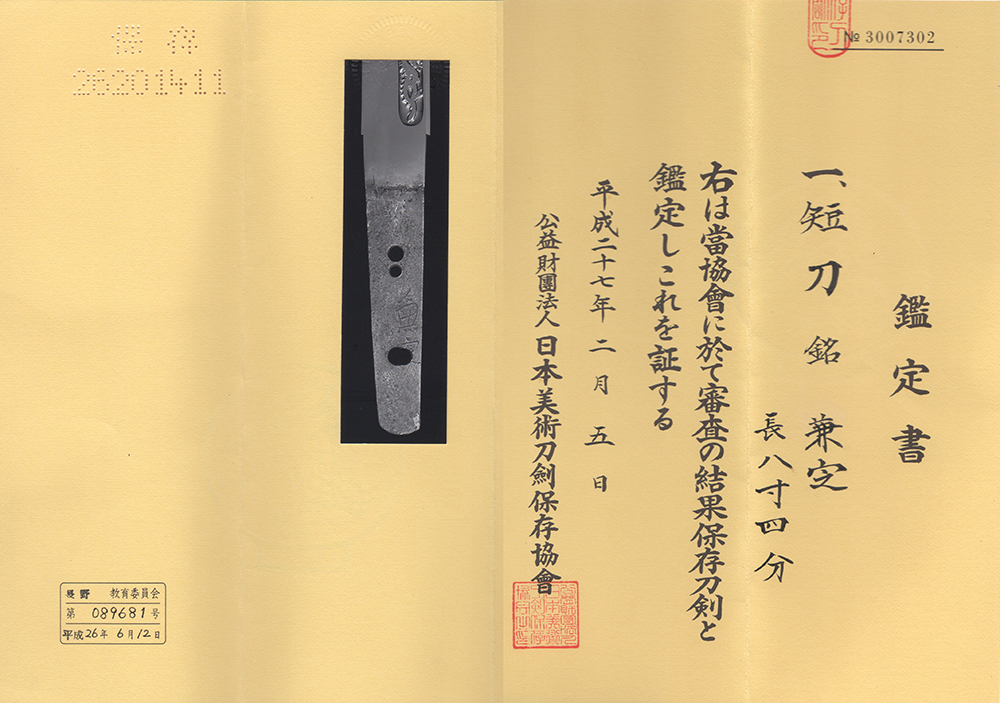 № 3007302
鑑定書
一、短刀 銘 兼㝎
長八寸四分
右は當協會に於て審査の結果保存刀剣と
鑑定しこれを証する
平成二十七年二月五日
公益財團法人日本美術刀劍保存協會
保存
26201411
兼㝎
長野 教育委員会
第 089681 号
平成26年 6月12日